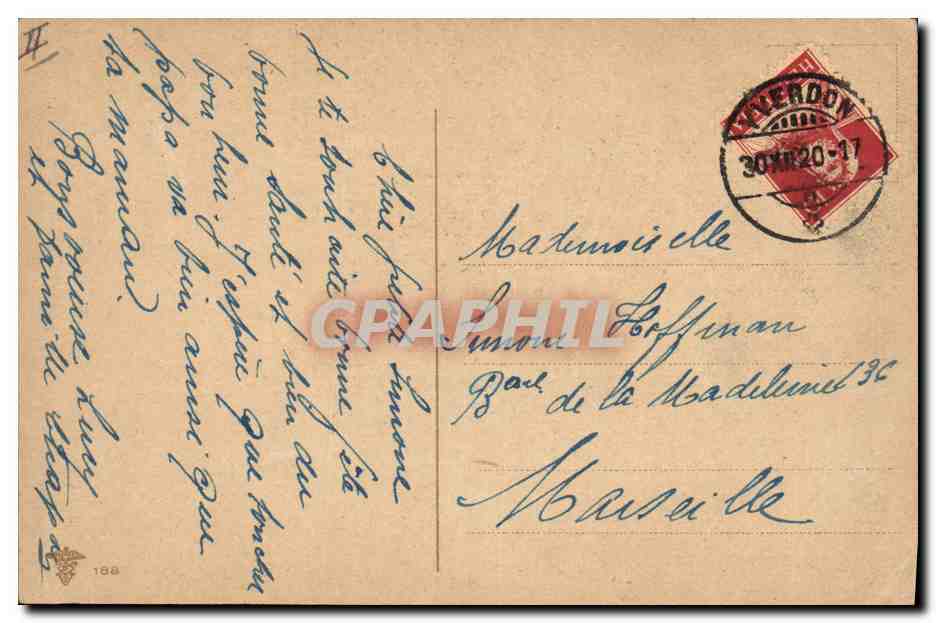 II
Chère petite Simone
Je te souhaite bonne fête
bonne santé et bien du
bonheur. J'espère que
papa va bien ainsi que
ta maman.
Bons baisers Lucy
et famille
188
HELVETIA
YVERDON
30.XII.20-17
Mademoiselle
Simone Hoffman
Bard de la Madeleine 136
Marseille
CPAPHIL